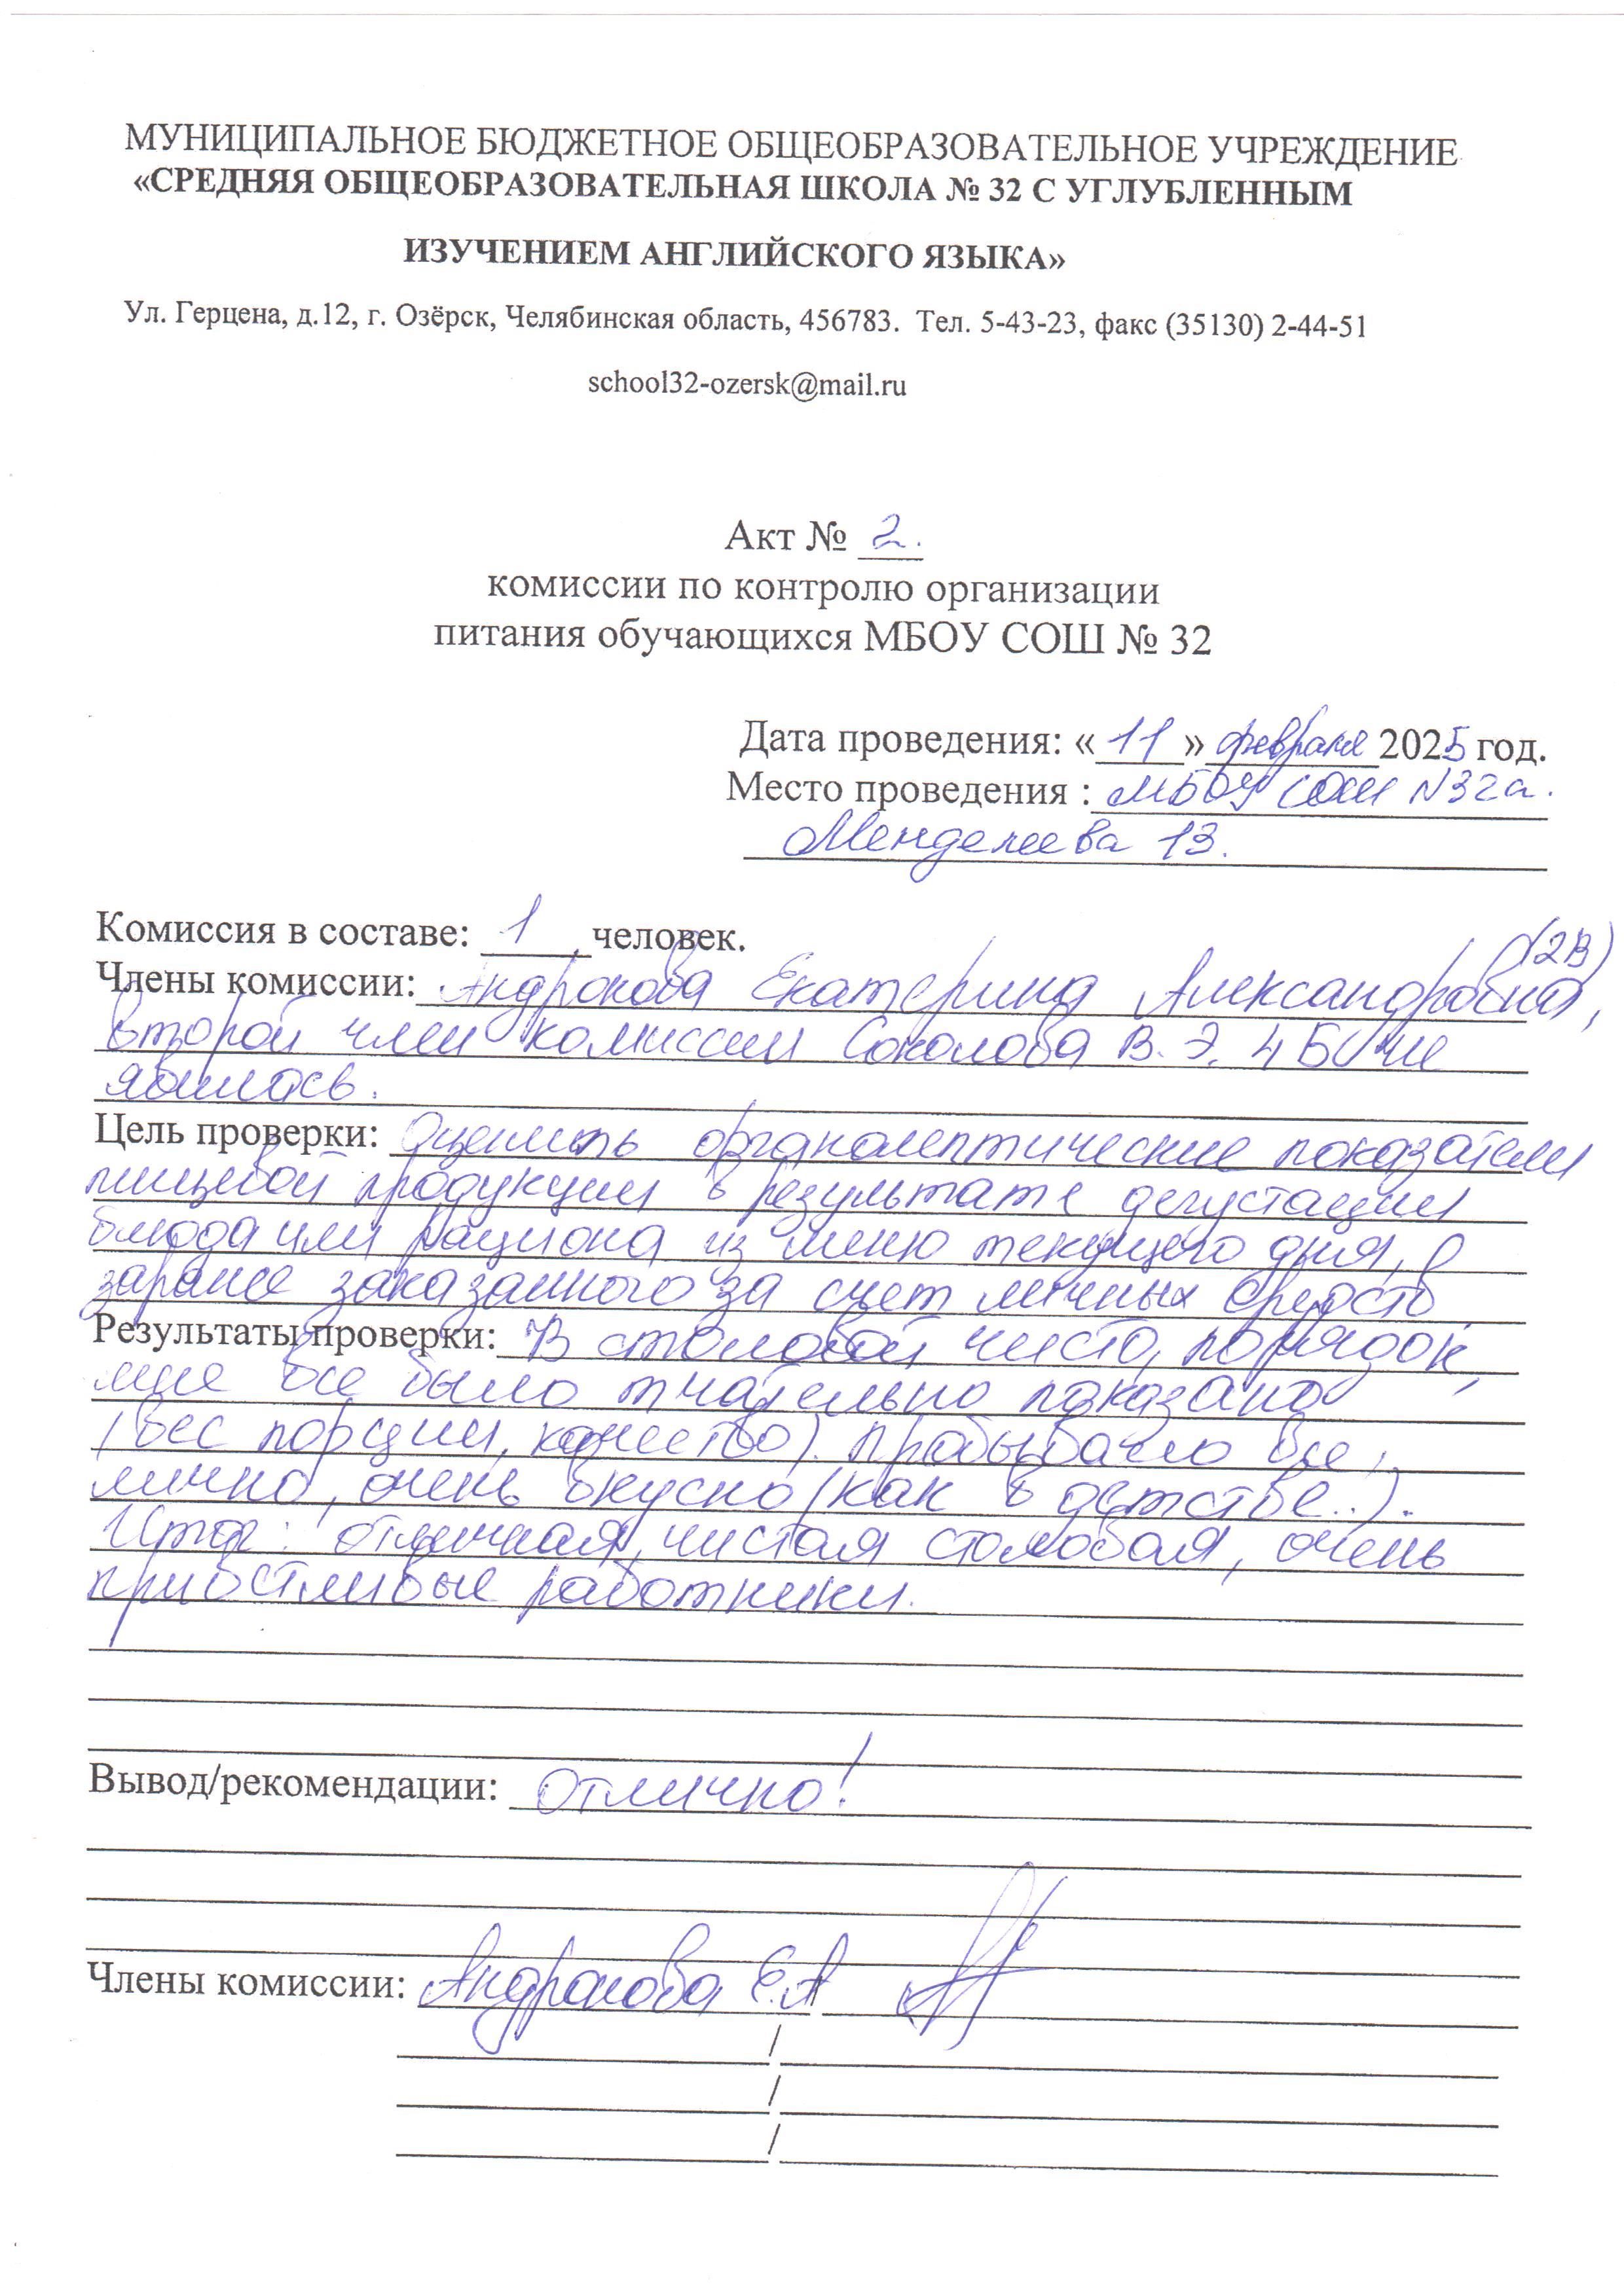 МУНИЦИПАЛЬНОЕ БЮДЖЕТНОЕ ОБЩЕОБРАЗОВАТЕЛЬНОЕ УЧРЕЖДЕНИЕ
«СРЕДНЯЯ ОБЩЕОБРАЗОВАТЕЛЬНАЯ ШКОЛА № 32 С УГЛУБЛЕННЫМ
ИЗУЧЕНИЕМ АНГЛИЙСКОГО ЯЗЫКА»
Ул. Герцена, д.12, г. Озёрск, Челябинская область, 456783. Тел. 5-43-23, факс (35130) 2-44-51
school32-ozersk@mail.ru
Акт № 2.
комиссии по контролю организации
питания обучающихся МБОУ СОШ № 32
Дата проведения: «11» февраля 2025 год.
Место проведения : МБОУ СОШ №32а.
Менделеева 13.
Комиссия в составе: 1 человек.
(2В)
Члены комиссии: Андронова Екатерина Александровна,
второй член комиссии Соколова В. Э. 4 Б не
явилась.
Цель проверки: Оценить органолептические показатели
пищевой продукции в результате дегустации
блюда или рациона из меню текущего дня,
заранее заказанного за счет личных средств
Результаты проверки: В столовой чисто, порядок,
мне все было тщательно показано
(вес порции, качество). пробывало все
лично, очень вкусно (как в детстве..).
Итог: отличная, чистая столовая, очень
приветливые работники.
Вывод/рекомендации: Отлично!
Члены комиссии: Андронова Е.А
/
/
/